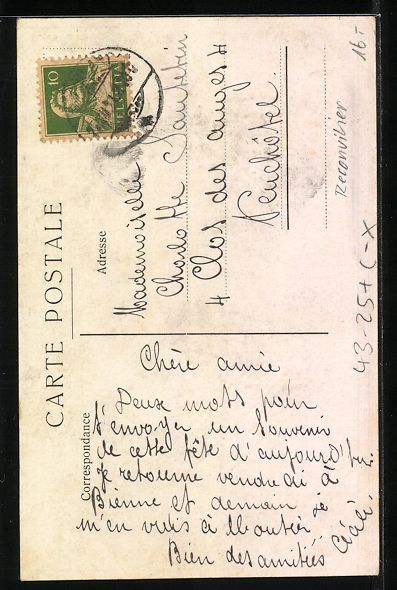 CARTE POSTALE
Correspondance
Adresse
10
HELVETIA
Mademoiselle
Charlotte
4 Clos des anges 4
Neuchâtel.
Reconvilier
16-
43-25+C-X
Chère amie
Deux mots pour
t'envoyer un souvenir
de cette fête d'aujourd'hui.
Je retourne vendredi à
Bienne et demain je
m'en vais à Moutier
Bien des amitiés